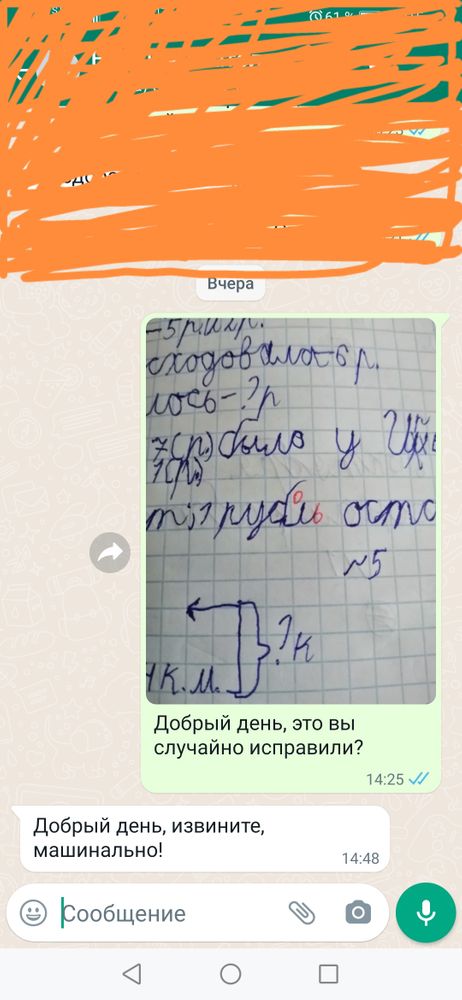 61 %
Вчера
-5 р. и 2 р.
сходовало-6 р.
лось-? р
7(р.) было у
1(р.)
1 рубль оста
~5
? к
к. м.
Добрый день, это вы
случайно исправили?
14:25
Добрый день, извините,
машинально!
14:48
Сообщение